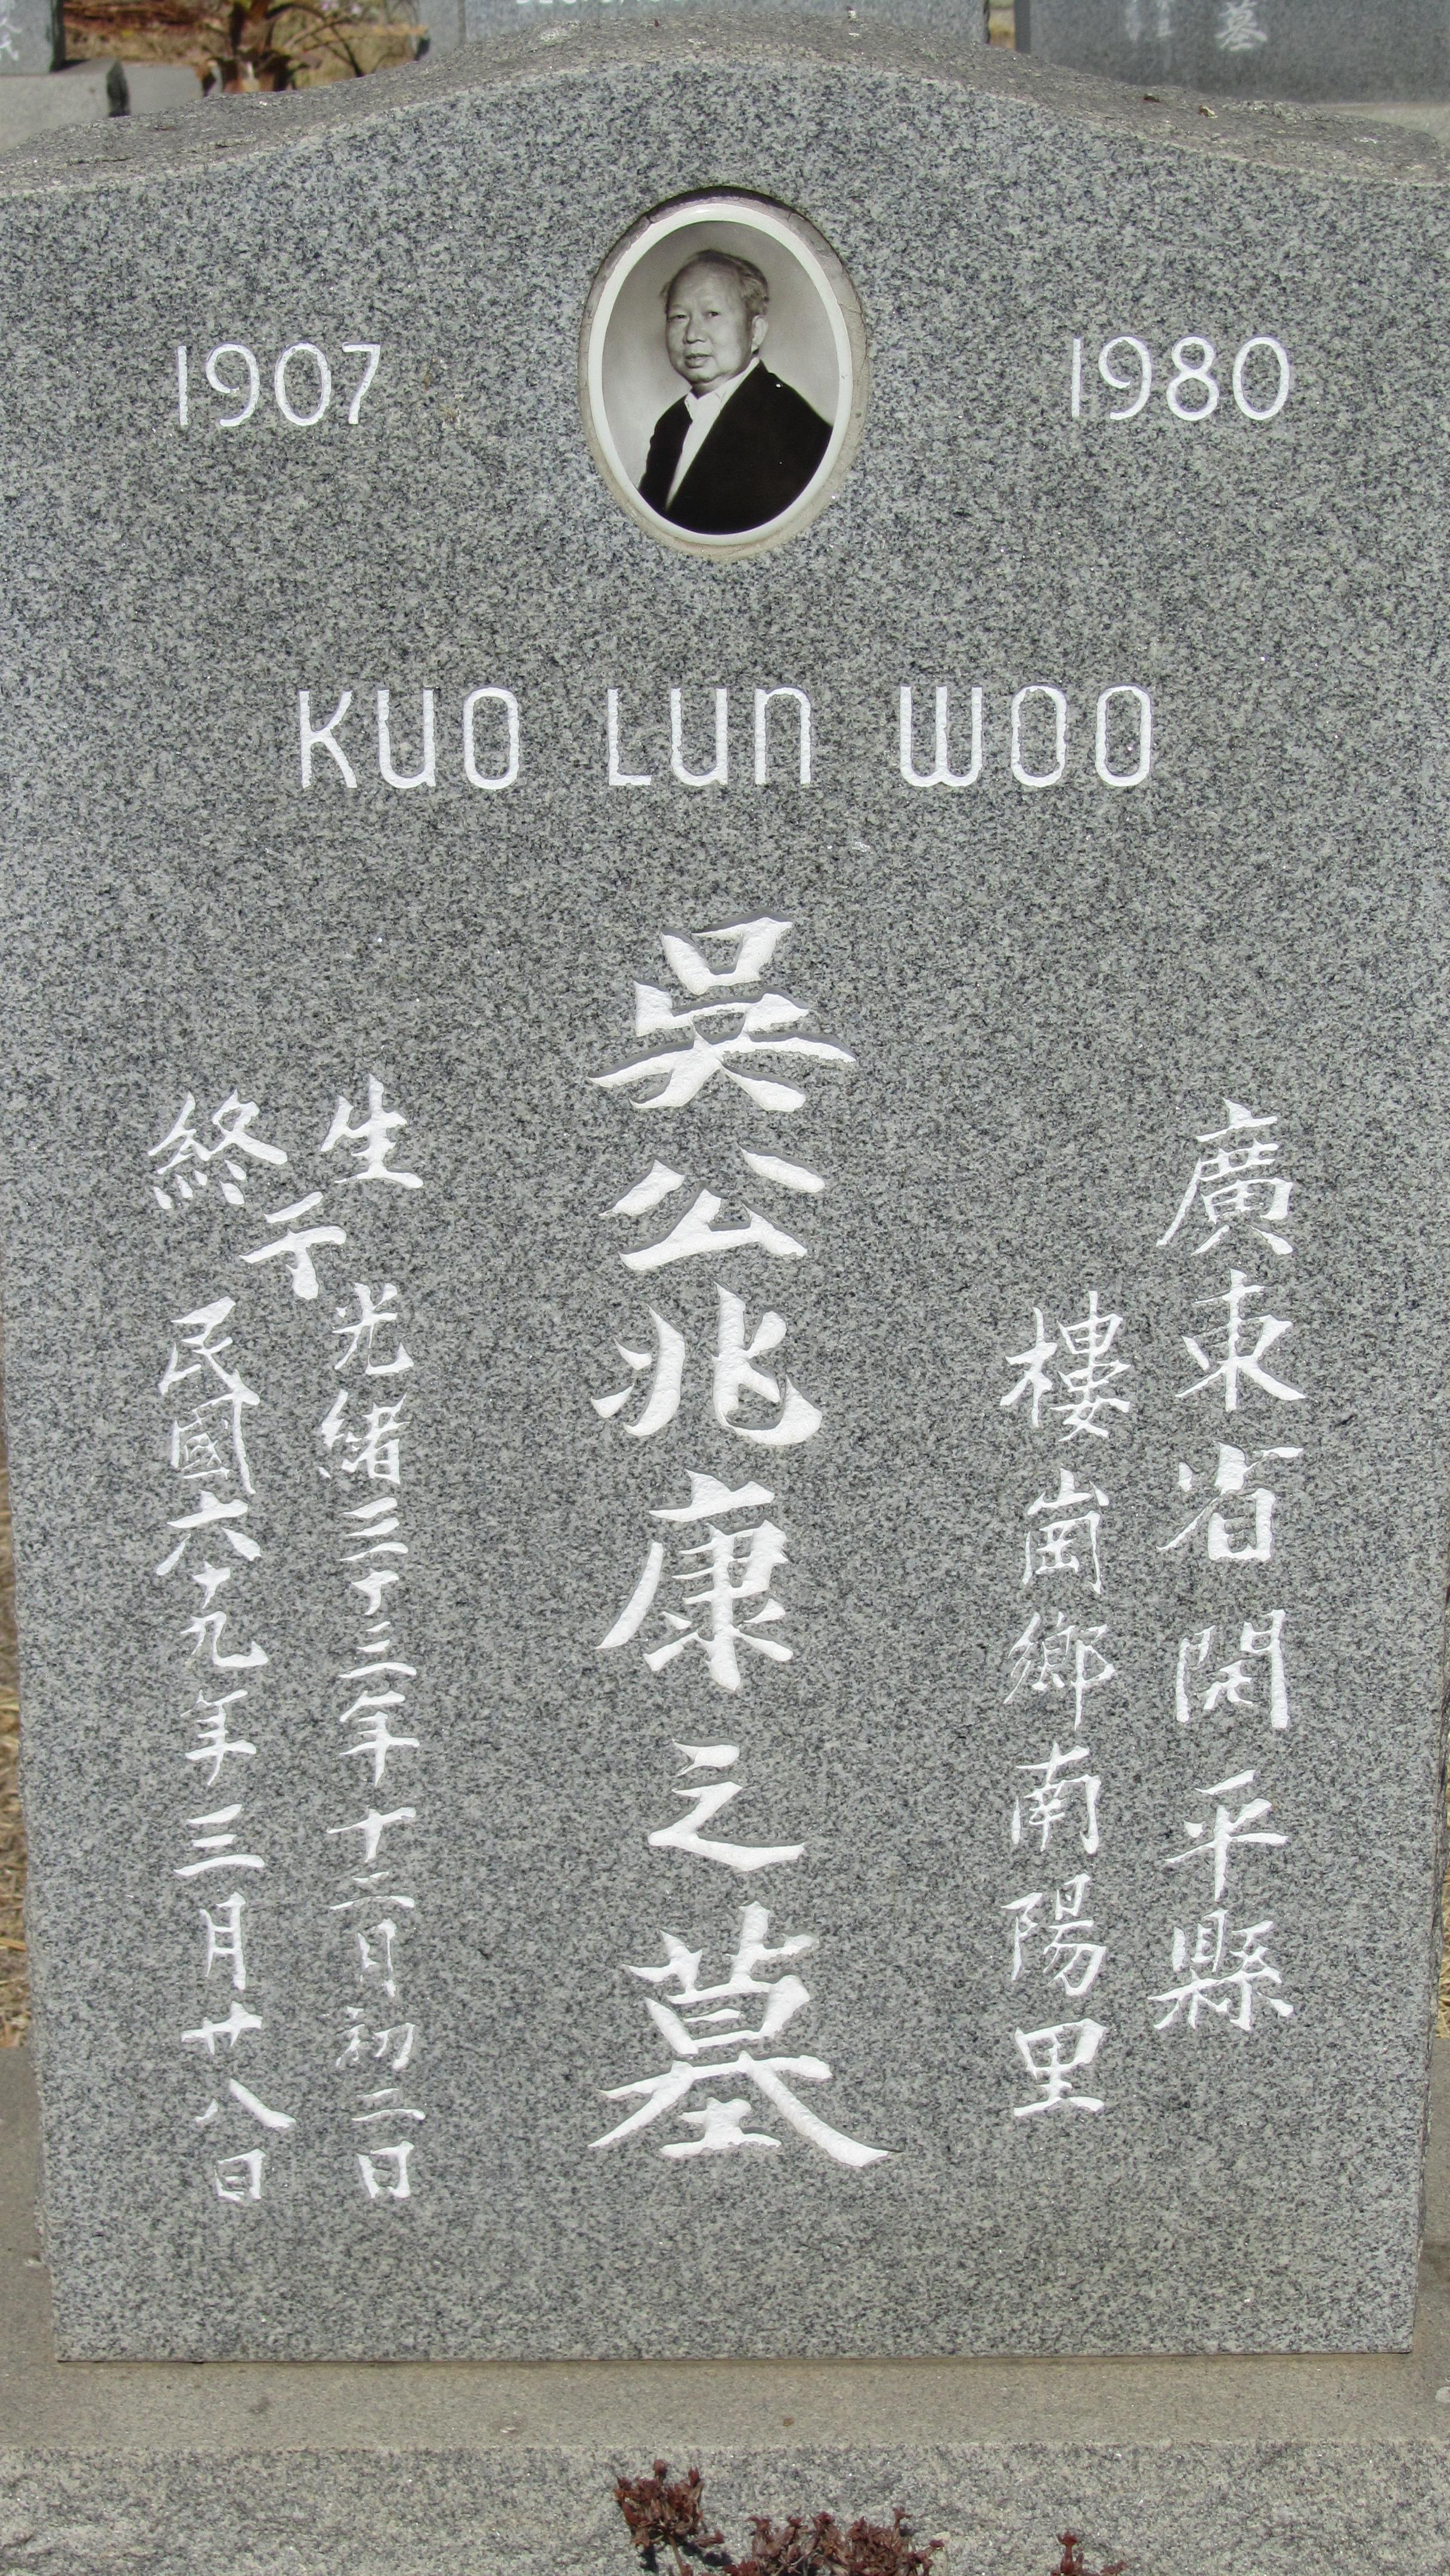 1907 1980
KUO LUN WOO
廣東省開平縣
樓崗鄉南陽里
吳公兆康之墓
生于光緒三十三年十二月初二日
終于民國六十九年三月廿八日
墓